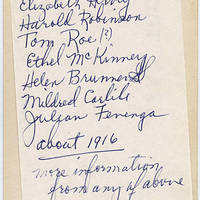 Elizabeth Henry
Harold Robinson
Tom Roe (?)
Ethel McKinney
Helen Brunner
Mildred Carlile
Julian Fenenga
about 1916
more information
from any of above